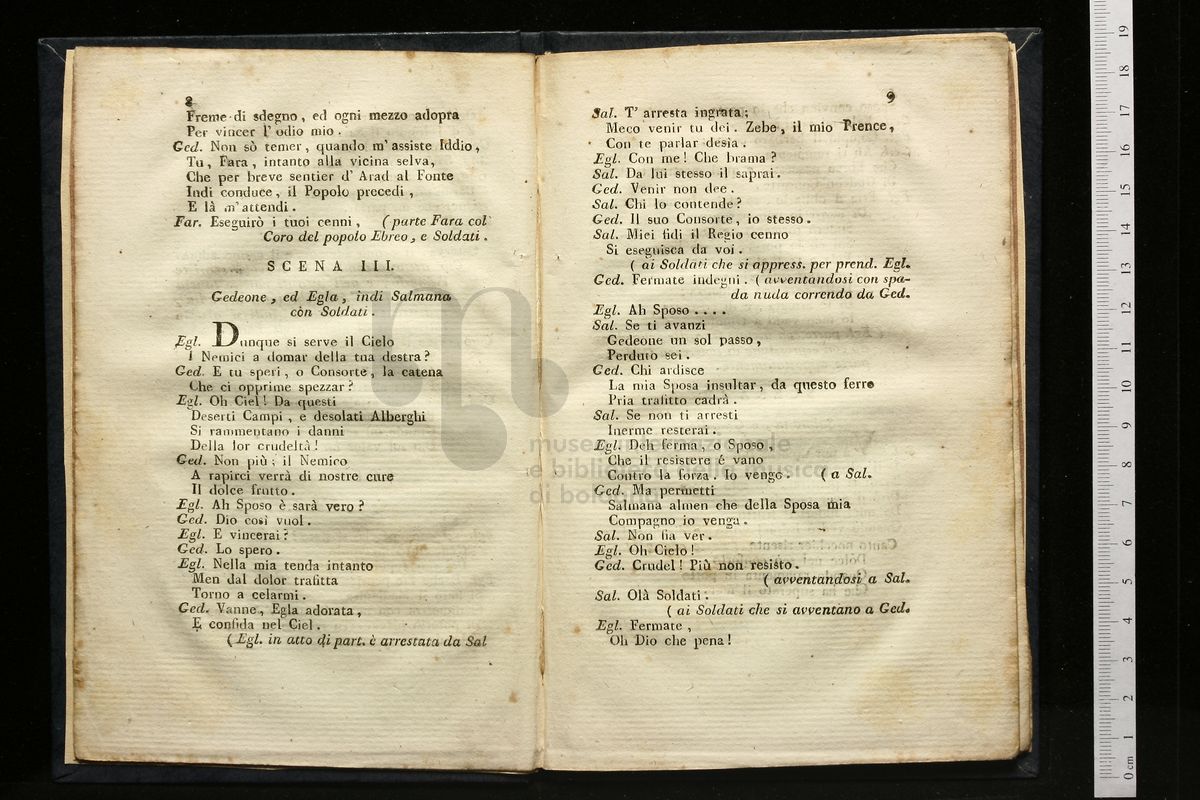 8
Freme di sdegno, ed ogni mezzo adopra
Per vincer l' odio mio.
Ged. Non sò temer, quando m' assiste Iddio,
Tu, Fara, intanto alla vicina selva,
Che per breve sentier d' Arad al Fonte
Indi conduce, il Popolo precedi,
E là m' attendi.
Far. Eseguirò i tuoi cenni, (parte Fara col
Coro del popolo Ebreo, e Soldati.
SCENA III.
Gedeone, ed Egla, indi Salmana
con Soldati.
Egl. Dunque si serve il Cielo
I Nemici a domar della tua destra?
Ged. E tu speri, o Consorte, la catena
Che ci opprime spezzar?
Egl. Oh Ciel! Da questi
Deserti Campi, e desolati Alberghi
Si rammentano i danni
Della lor crudeltà!
Ged. Non più; il Nemico
A rapirci verrà di nostre cure
Il dolce frutto.
Egl. Ah Sposo è sarà vero?
Ged. Dio così vuol.
Egl. E vincerai?
Ged. Lo spero.
Egl. Nella mia tenda intanto
Men dal dolor trafitta
Torno a celarmi.
Ged. Vanne, Egla adorata,
E confida nel Ciel.
(Egl. in atto di part. è arrestata da Sal
9
Sal. T' arresta ingrata;
Meco venir tu dei. Zebe, il mio Prence,
Con te parlar desia.
Egl. Con me! Che brama?
Sal. Da lui stesso il saprai.
Ged. Venir non dee.
Sal. Chi lo contende?
Ged. Il suo Consorte, io stesso.
Sal. Miei fidi il Regio cenno
Si eseguisca da voi.
(ai Soldati che si appress. per prend. Egl.
Ged. Fermate indegni. (avventandosi con spa-
da nuda correndo da Ged.
Egl. Ah Sposo....
Sal. Se ti avanzi
Gedeone un sol passo,
Perduto sei.
Ged. Chi ardisce
La mia Sposa insultar, da questo ferro
Pria trafitto cadrà.
Sal. Se non ti arresti
Inerme resterai.
Egl. Deh ferma, o Sposo,
Che il resistere é vano
Contro la forza. Io vengo. (a Sal.
Ged. Ma permetti
Salmana almen che della Sposa mia
Compagno io venga.
Sal. Non fia ver.
Egl. Oh Cielo!
Ged. Crudel! Più non resisto.
(avventandosi a Sal.
Sal. Olà Soldati.
(ai Soldati che si avventano a Ged.
Egl. Fermate,
Oh Dio che pena!
museo internazionale
e biblioteca della musica
di bologna
0 cm 1 2 3 4 5 6 7 8 9 10 11 12 13 14 15 16 17 18 19